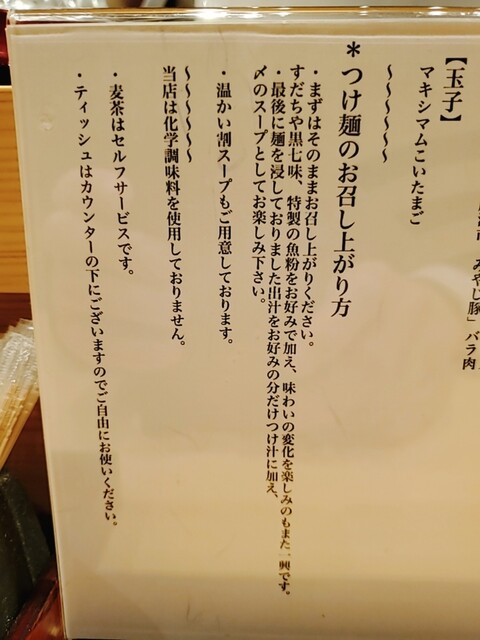 みやじ豚」バラ肉
【玉子】
マキシマムこいたまご
〜〜〜〜〜〜
＊つけ麺のお召し上がり方
・まずはそのままお召し上がりください。
すだちや黒七味、特製の魚粉をお好みで加え、味わいの変化を楽しみのもまた一興です。
・最後に麺を浸しておりました出汁をお好みの分だけつけ汁に加え、
〆のスープとしてお楽しみ下さい。
・温かい割スープもご用意しております。
〜〜〜〜〜〜
当店は化学調味料を使用しておりません。
・麦茶はセルフサービスです。
・ティッシュはカウンターの下にございますのでご自由にお使いください。